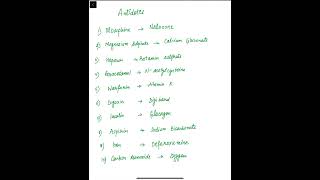 Antidotes
1) Morphine → Naloxone
2) Magnesium Sulphate → Calcium Gluconate
3) Heparin → Protamin sulphate
4) Paracetamol → N-acetylcysteine
5) Warfarin → Vitamin K
6) Digoxin → Digibind
7) Insulin → Glucagon
8) Aspirin → Sodium Bicarbonate
9) Iron → Deferoxamine
10) Carbon Monoxide → Oxygen